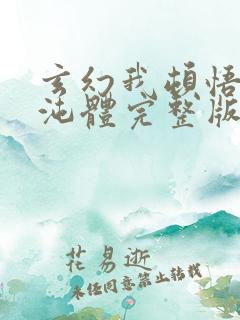 玄幻我頓悟
沌體完整版
花易逝
未经同意禁止转载